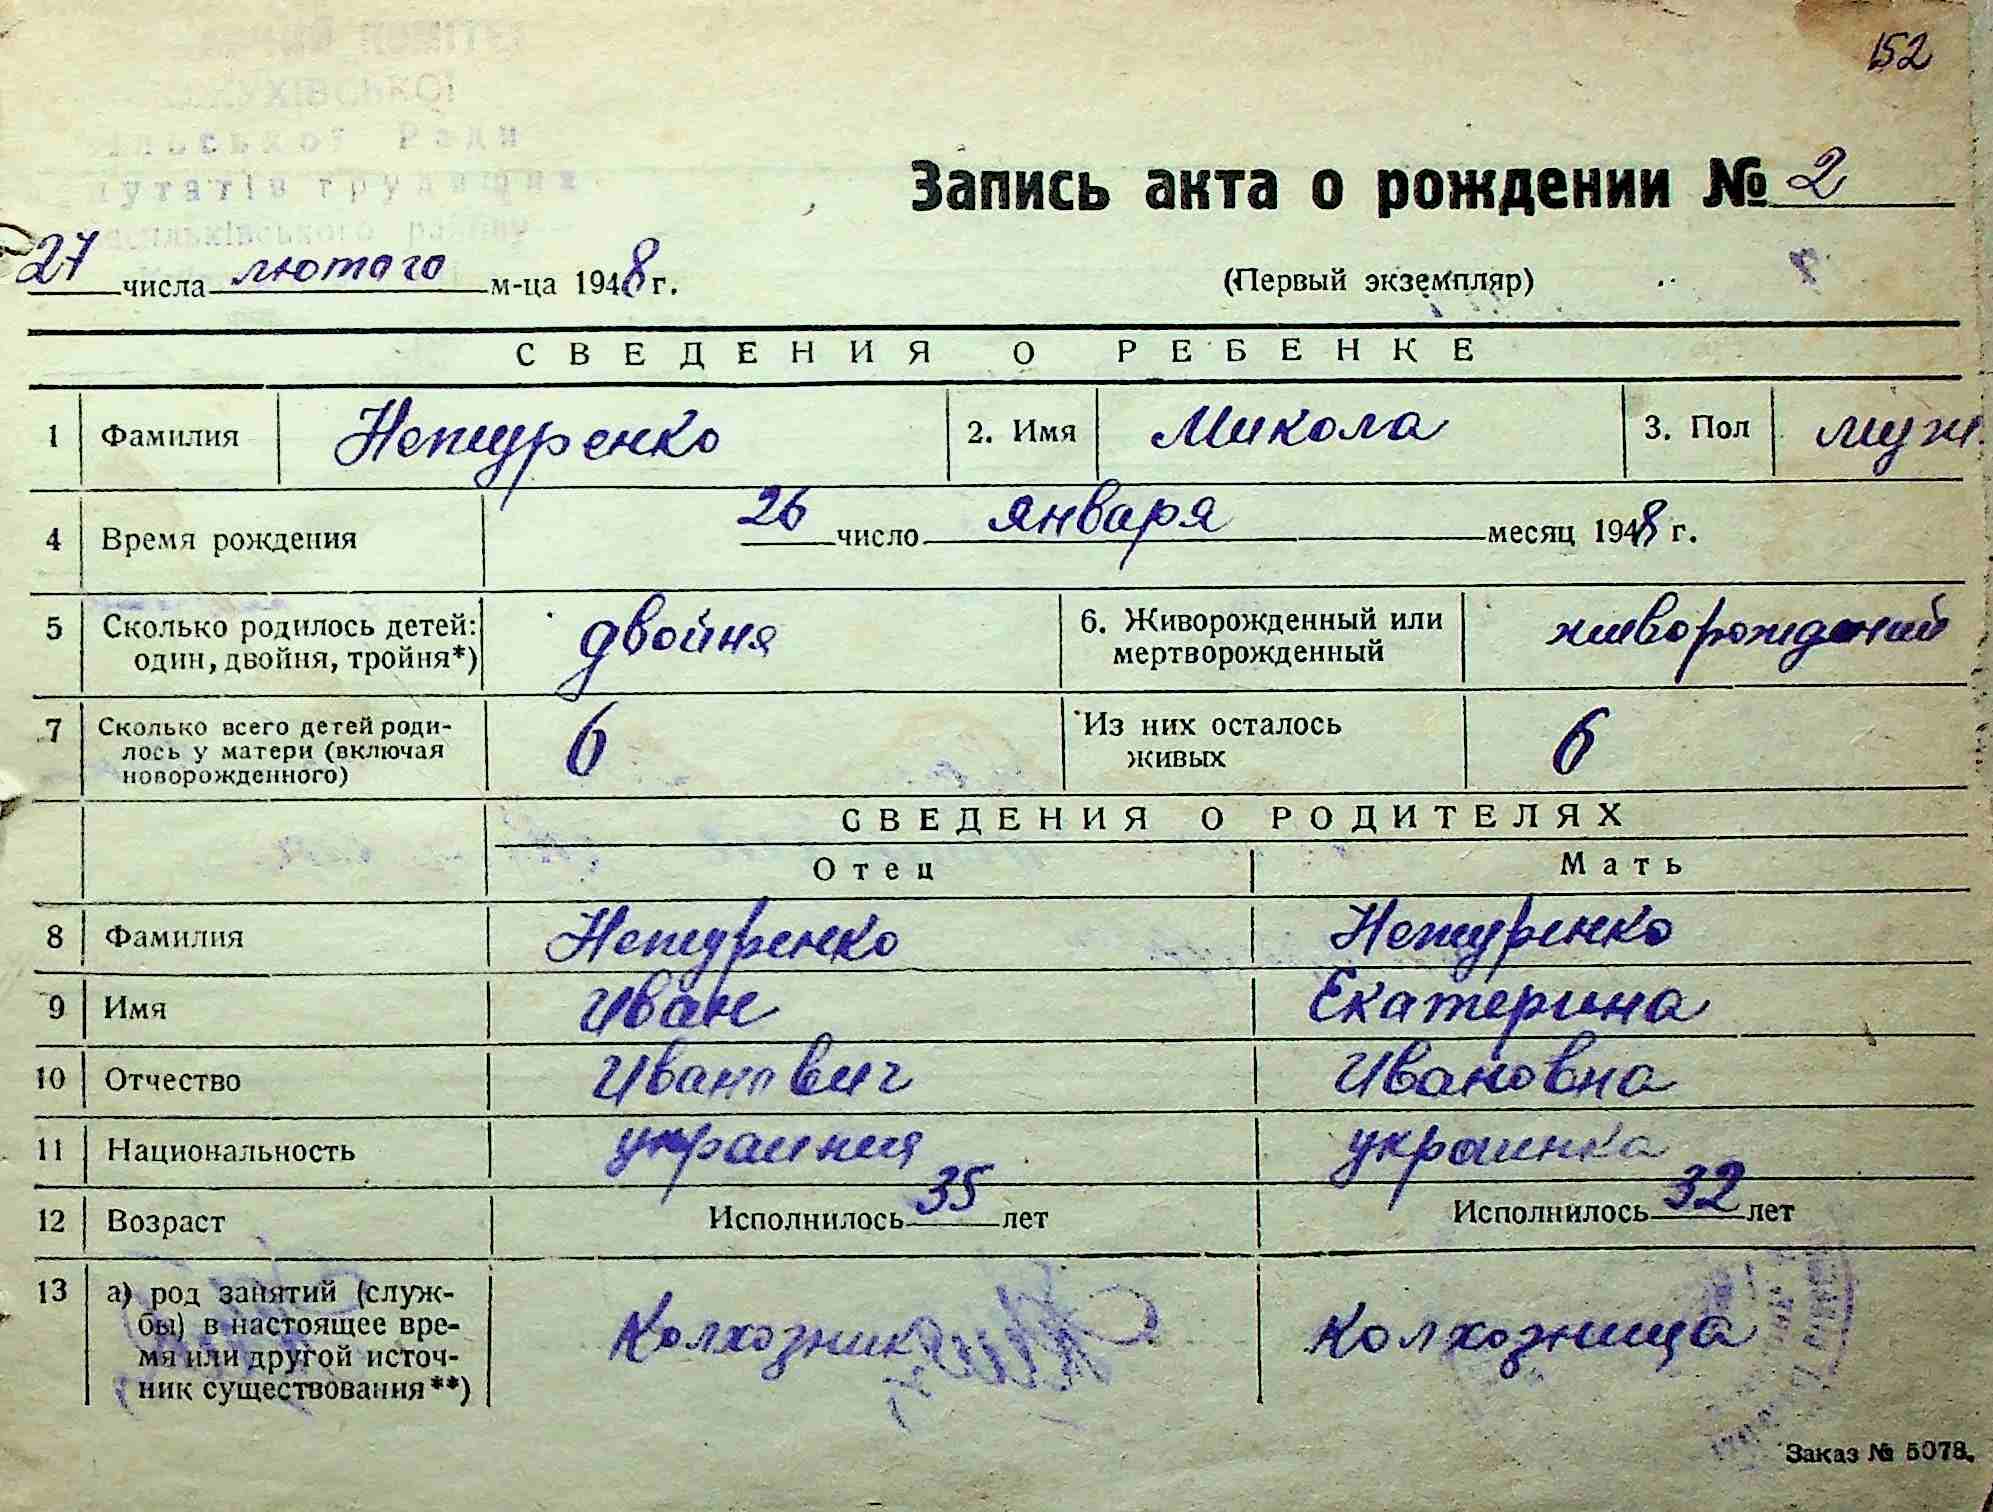 152
Запись акта о рождении № 2
27 числа лютого м-ца 1948 г.
(Первый экземпляр)
СВЕДЕНИЯ О РЕБЕНКЕ
1 Фамилия Нетуренко 2. Имя Микола 3. Пол муж.
4 Время рождения 26 число января месяц 1948 г.
5 Сколько родилось детей: один, двойня, тройня*) двойня 6. Живорожденный или мертворожденный живорождений
7 Сколько всего детей роди-
лось у матери (включая
новорожденного) 6 Из них осталось живых 6
СВЕДЕНИЯ О РОДИТЕЛЯХ
Отец Мать
8 Фамилия Нетуренко Нетуренко
9 Имя Иван Екатерина
10 Отчество Иванович Ивановна
11 Национальность украинец украинка
12 Возраст Исполнилось 35 лет Исполнилось 32 лет
13 а) род занятий (служ-
бы) в настоящее вре-
мя или другой источ-
ник существования**) Колхозник Колхозница
Заказ № 5078.